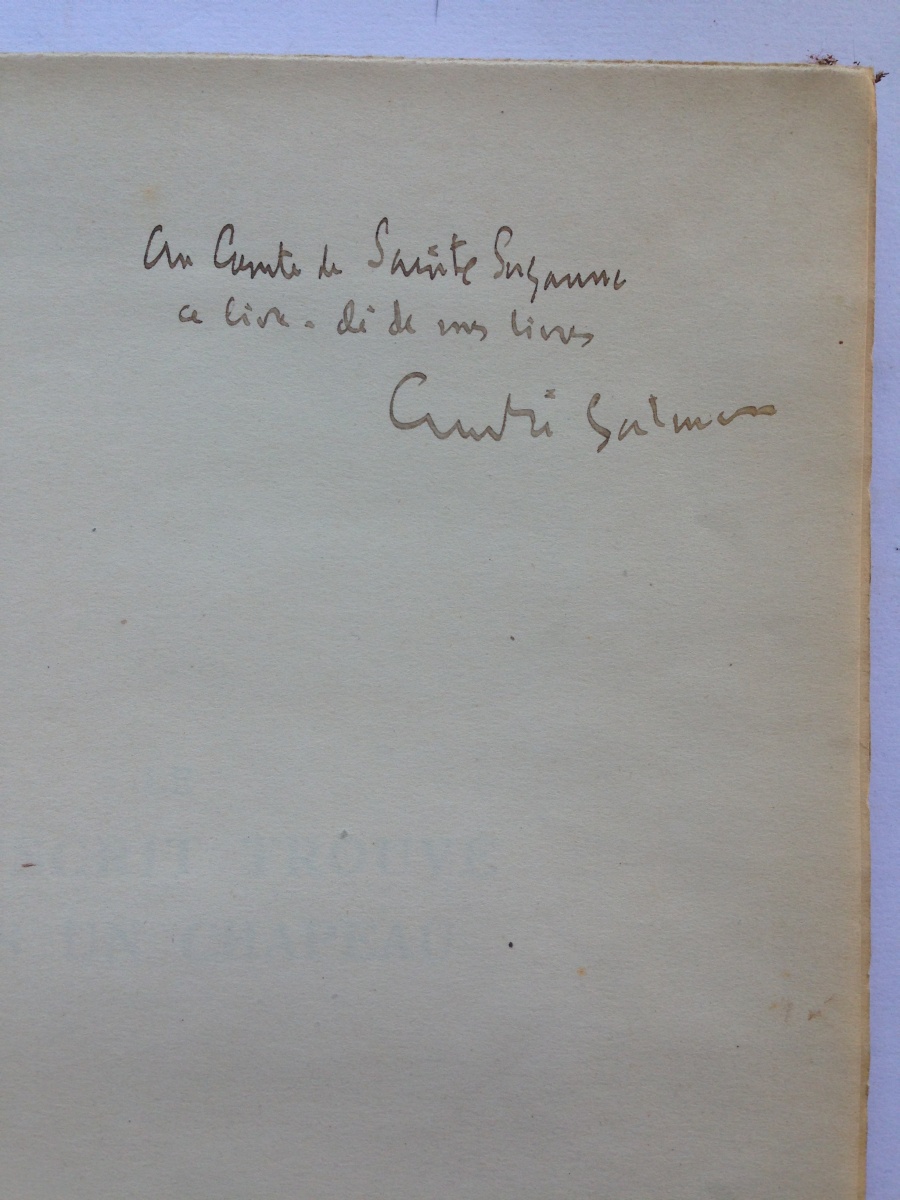 Au Comte de Sainte Suzanne
ce livre - clé de mes livres
André Salmon